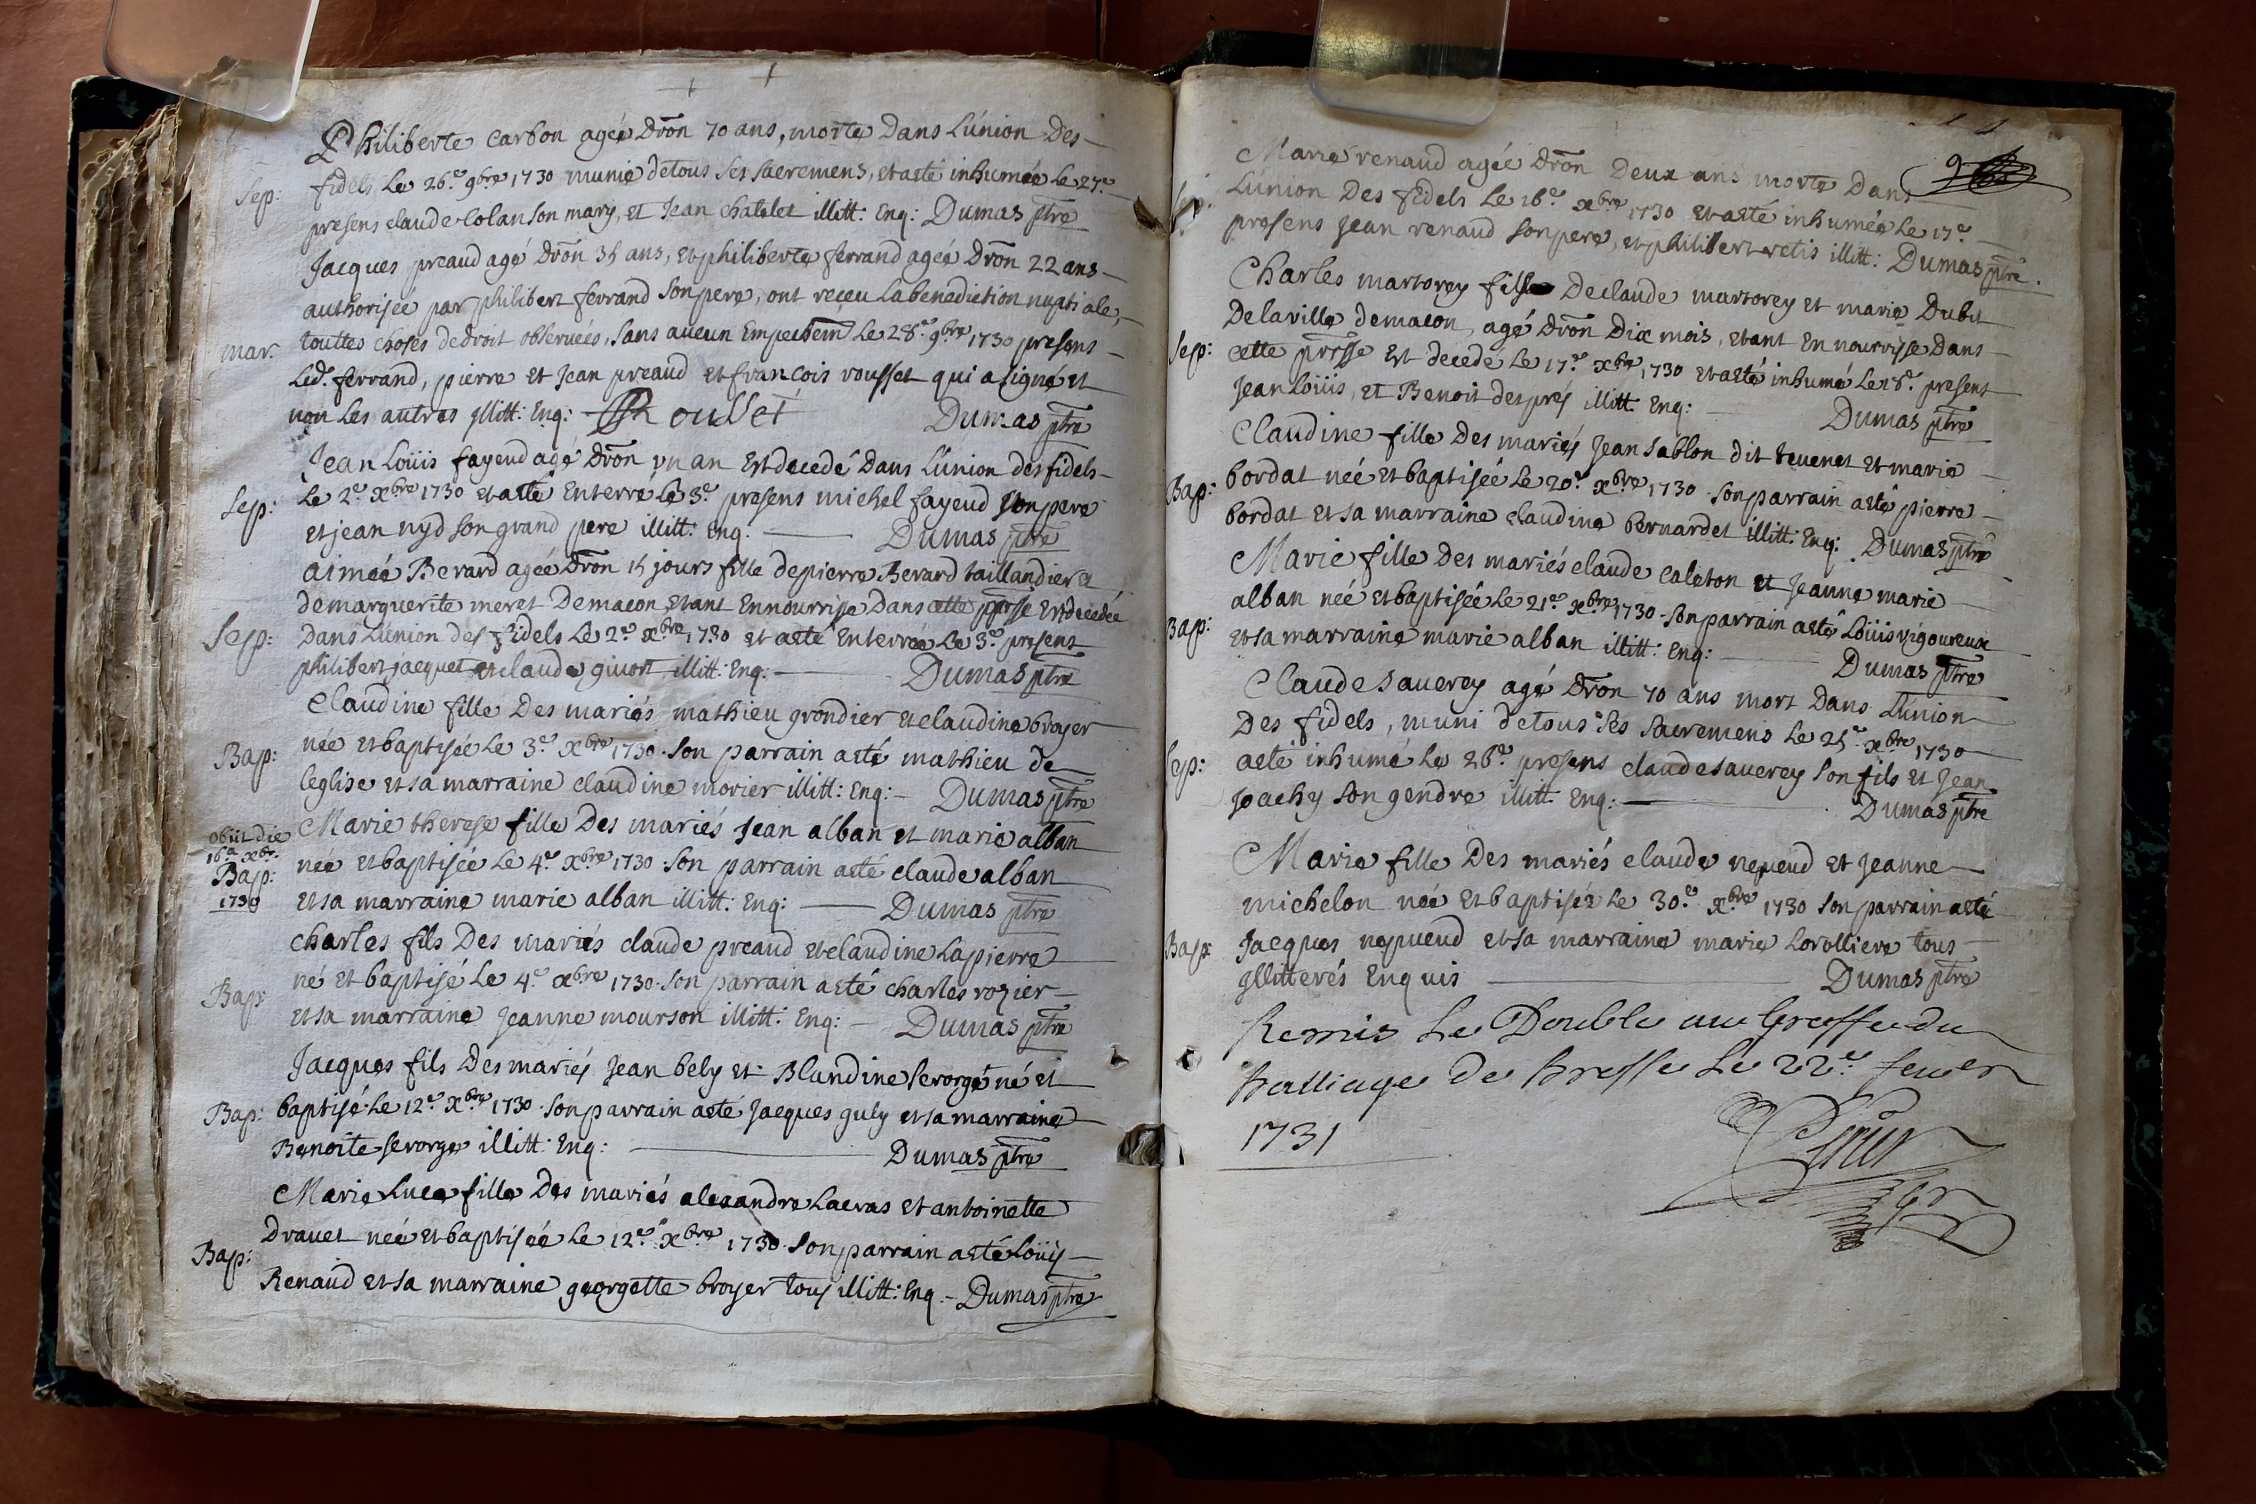 Philiberte Carbon agée dron 70 ans, morte Dans L'union Des
Sep: fidels Le 26.e 9bre 1730 munie de tous ses sacremens, et a eté inhumée Le 27.e
presens claude Colan son mary, et Jean Chatelet illitt: Enq: Dumas ptre
Jacques preaud agé dron 35 ans, et philiberte ferrand agée dron 22 ans
authorisée par philibert ferrand son pere, ont receu La benediction nuptiale,
mar. touttes choses de droit observées, sans aucun Empechem Le 28.e 9bre 1730 presens
Led. ferrand, pierre et Jean preaud et francois rousset qui a signé et
non Les autres jllitt: Enq: Rousset Dumas ptre
Jean Loüis fayeud agé dron vn an Est decedé Dans L'union des fidels
Sep: Le 2.e xbre 1730 et a eté Enterré Le 3.e presens michel fayeud son pere
et jean nyd son grand pere illitt: Enq. Dumas ptre
aimée Berard agée dron 15 jours fille de pierre Berard taillandier et
de marguerite meret De macon, Etant En nourrisse Dans cette parsse Est decedée
Sep: Dans L'union des fidels Le 2.e xbre 1730 et a eté Enterrée Le 3.e presens
philibert jacquet et claude guion illitt: Enq. Dumas ptre
Claudine fille Des mariés mathieu grondier et claudine broyer
Bap: née et baptisée Le 3.e xbre 1730. son parrain a eté mathieu de
leglise et sa marraine claudine morier illitt: Enq: Dumas ptre
obiit die Marie therese fille Des mariés Jean alban et marie alban
16.a xbr.
Bap: née et baptisée Le 4.e xbre 1730. son parrain a eté claude alban
1730 et sa marraine marie alban illitt: Enq: Dumas ptre
Charles fils Des mariés claude preaud et claudine Lapierre
Bap: né et baptisé Le 4.e xbre 1730. son parrain a eté charles rozier
et sa marraine Jeanne mourson illitt: Enq: Dumas ptre
Jacques fils Des mariés Jean bely et Blandine Serorge né et
Bap: baptisé Le 12.e xbre 1730. son parrain a eté Jacques guly et sa marraine
Benoite Serorge illitt: Enq: Dumas ptre
Marie Luce fille Des mariés alexandre Lacras et antoinette
Drauet née et baptisée Le 12.e xbre 1730. son parrain a eté Loüis
Bap: Renaud et sa marraine georgette broyer tous illitt: Enq. Dumas ptre
9
Marie renaud agée dron Deux ans morte Dans
Sep: L'union Des fidels Le 16.e xbre 1730 et a eté inhumée Le 17.e
presens Jean renaud son pere, et philibert retis illitt: Dumas ptre.
Charles martorey fils De claude martorey et marie Dubit
De la ville de macon, agé dron Dix mois, etant En nourrisse Dans
Sep: cette parsse Est decedé Le 17.e xbre 1730 et a eté inhumé Le 18.e present
Jean Loüis, et Benoit després illitt. Enq: Dumas ptre
Claudine fille Des mariés Jean sablon dit teuenet et marie
Bap: bordat née et baptisée Le 20.e xbre 1730. son parrain a eté pierre
bordat et sa marraine claudine bernardet illitt: Enq: Dumas ptre
Marie fille Des mariés claude caleton et Jeanne marie
alban née et baptisée Le 21.e xbre 1730. son parrain a eté Loüis vigoureux
Bap: et sa marraine marie alban illitt: Enq: Dumas ptre
Claude sauerey agé dron 70 ans mort Dans L'union
Des fidels, muni de tous ses sacremens Le 25.e xbre 1730
Sep: a eté inhumé Le 26.e presens claude sauerey son fils et Jean
Joachy son gendre illitt. Enq: Dumas ptre
Marie fille Des mariés claude nepueud et Jeanne
michelon née et baptisée Le 30.e xbre 1730 son parrain a eté
Bap: Jacques nepueud et sa marraine marie Lorolliere tous
jllitterés Enquis Dumas ptre
Remis Le Double au Greffe du
balliage de Bresse Le 22.e feuer
1731